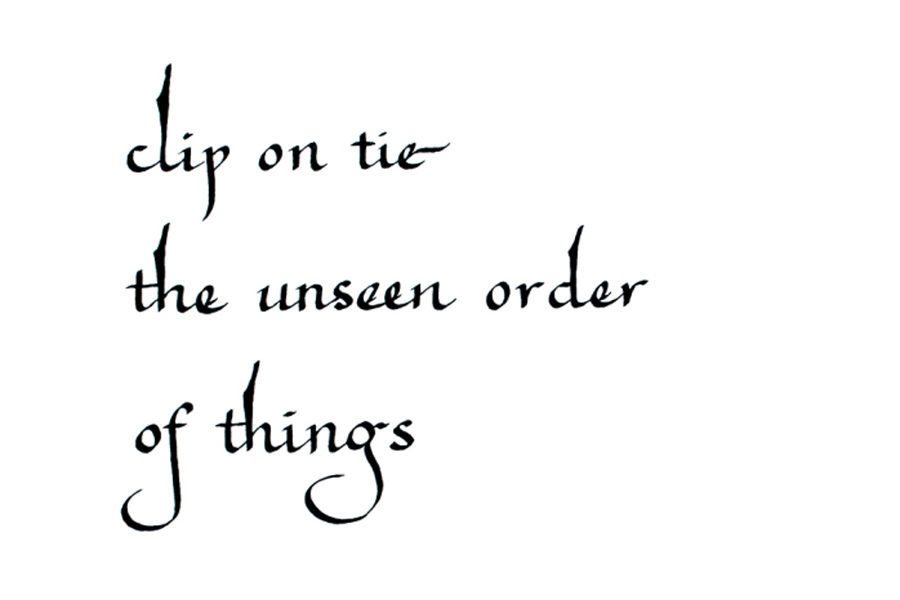 clip on tie
the unseen order
of things